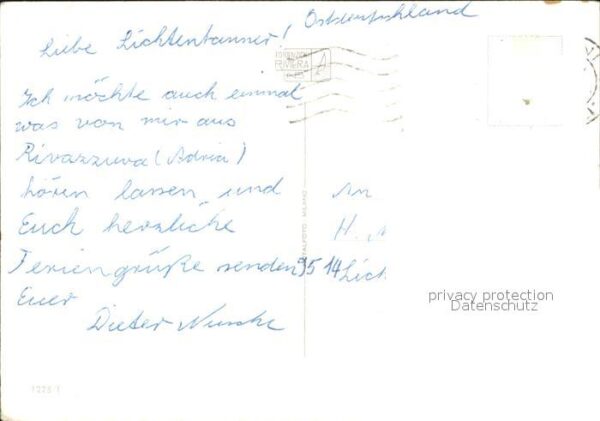 Ostdeutschland
Liebe Lichtentanner!
RIVIERA
Ich möchte auch einmal
was von mir aus
Rivazzuva (Adria)
hören lassen und
Euch herzliche
Feriengrüße senden
Euer
Dieter
An
H.
9514 Lich
privacy protection
Datenschutz
MILANO